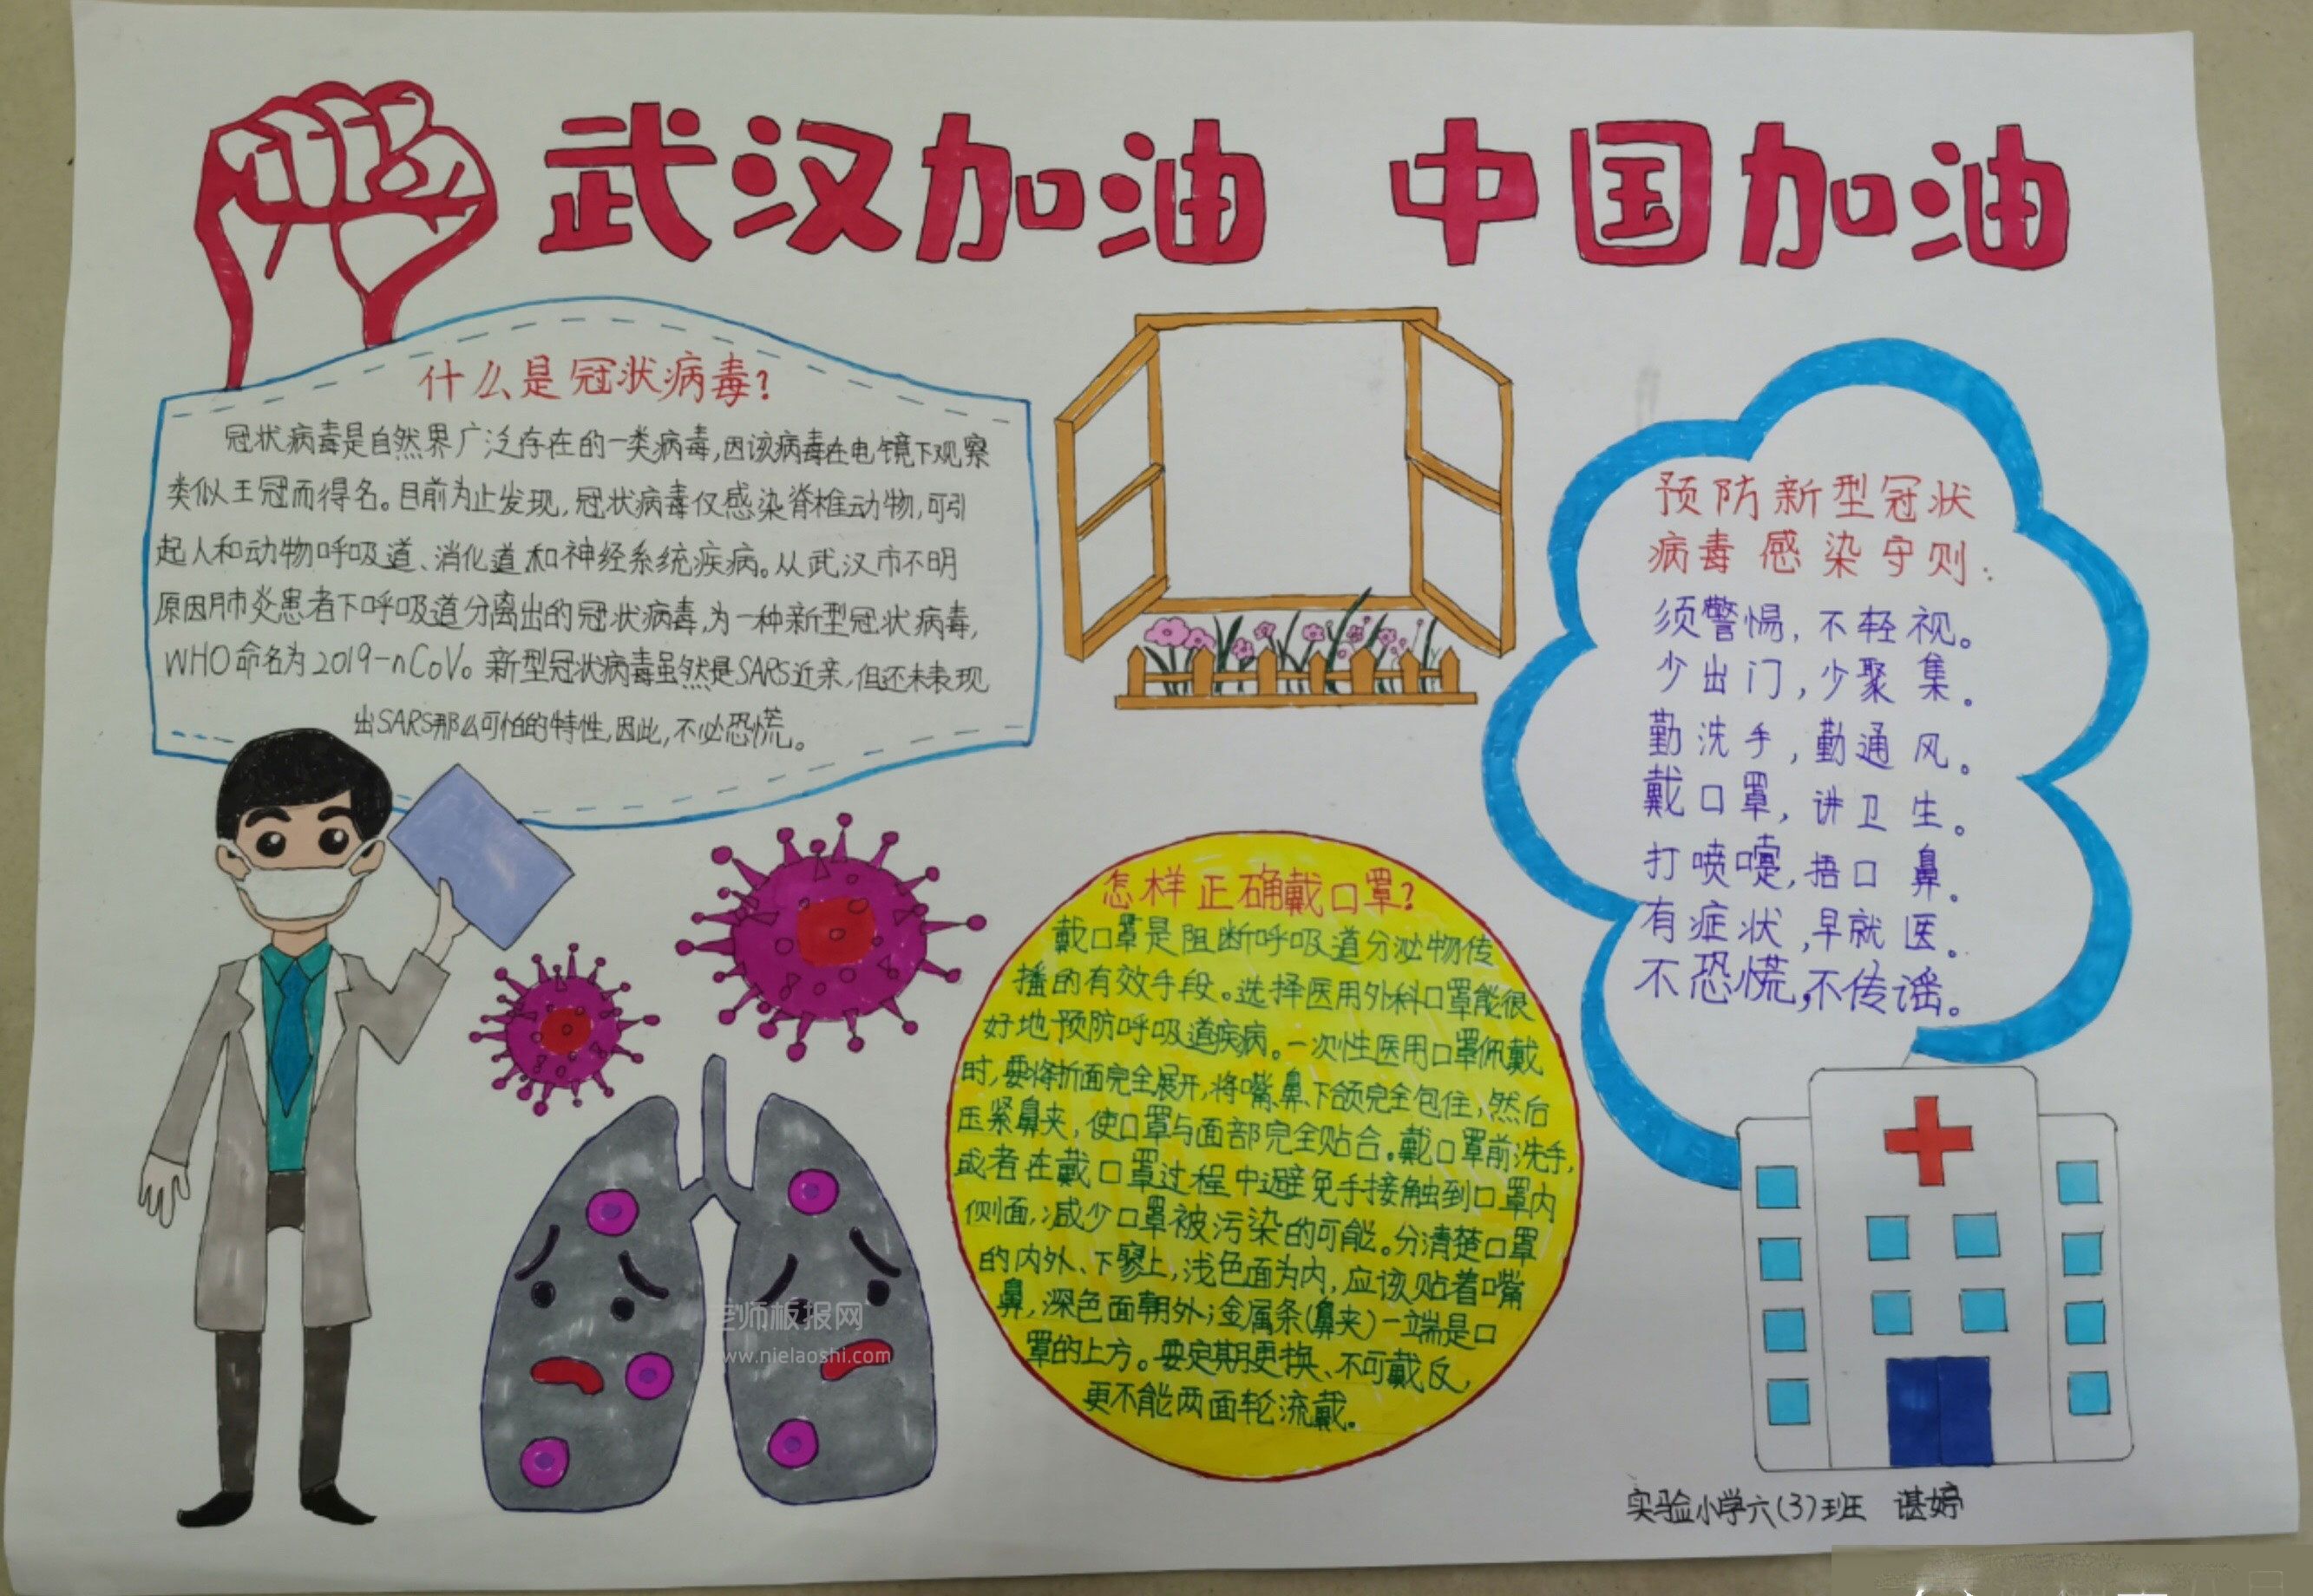 武汉加油 中国加油
什么是冠状病毒?
冠状病毒是自然界广泛存在的一类病毒,因该病毒在电镜下观察
类似王冠而得名。目前为止发现,冠状病毒仅感染脊椎动物,可引
起人和动物呼吸道、消化道和神经系统疾病。从武汉市不明
原因肺炎患者下呼吸道分离出的冠状病毒,为一种新型冠状病毒,
WHO命名为2019-nCoV。新型冠状病毒虽然是SARS近亲,但还未表现
出SARS那么可怕的特性,因此,不必恐慌。
预防新型冠状
病毒感染守则:
须警惕,不轻视。
少出门,少聚集。
勤洗手,勤通风。
戴口罩,讲卫生。
打喷嚏,捂口鼻。
有症状,早就医。
不恐慌,不传谣。
怎样正确戴口罩?
戴口罩是阻断呼吸道分泌物传
播的有效手段。选择医用外科口罩能很
好地预防呼吸道疾病。一次性医用口罩佩戴
时,要将折面完全展开,将嘴、鼻、下颌完全包住,然后
压紧鼻夹,使口罩与面部完全贴合。戴口罩前洗手,
或者在戴口罩过程中避免手接触到口罩内
侧面,减少口罩被污染的可能。分清楚口罩
的内外、下上,浅色面为内,应该贴着嘴
鼻,深色面朝外;金属条(鼻夹)一端是口
罩的上方。要定期更换、不可戴反,
更不能两面轮流戴。
老师板报网
www.nielaoshi.com
实验小学六(3)班 谌婷